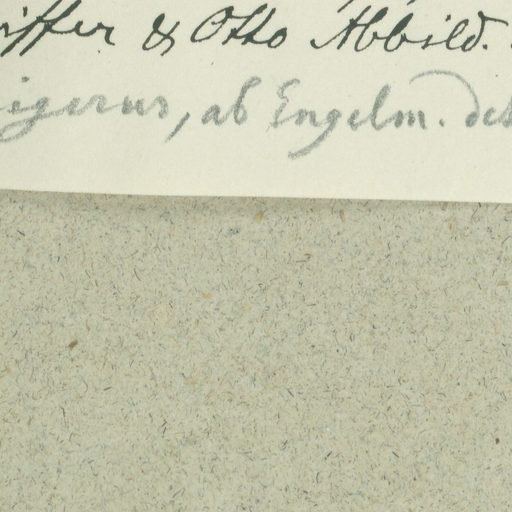 iffer & Otto Abbild.
igerus, ab Engelm. det